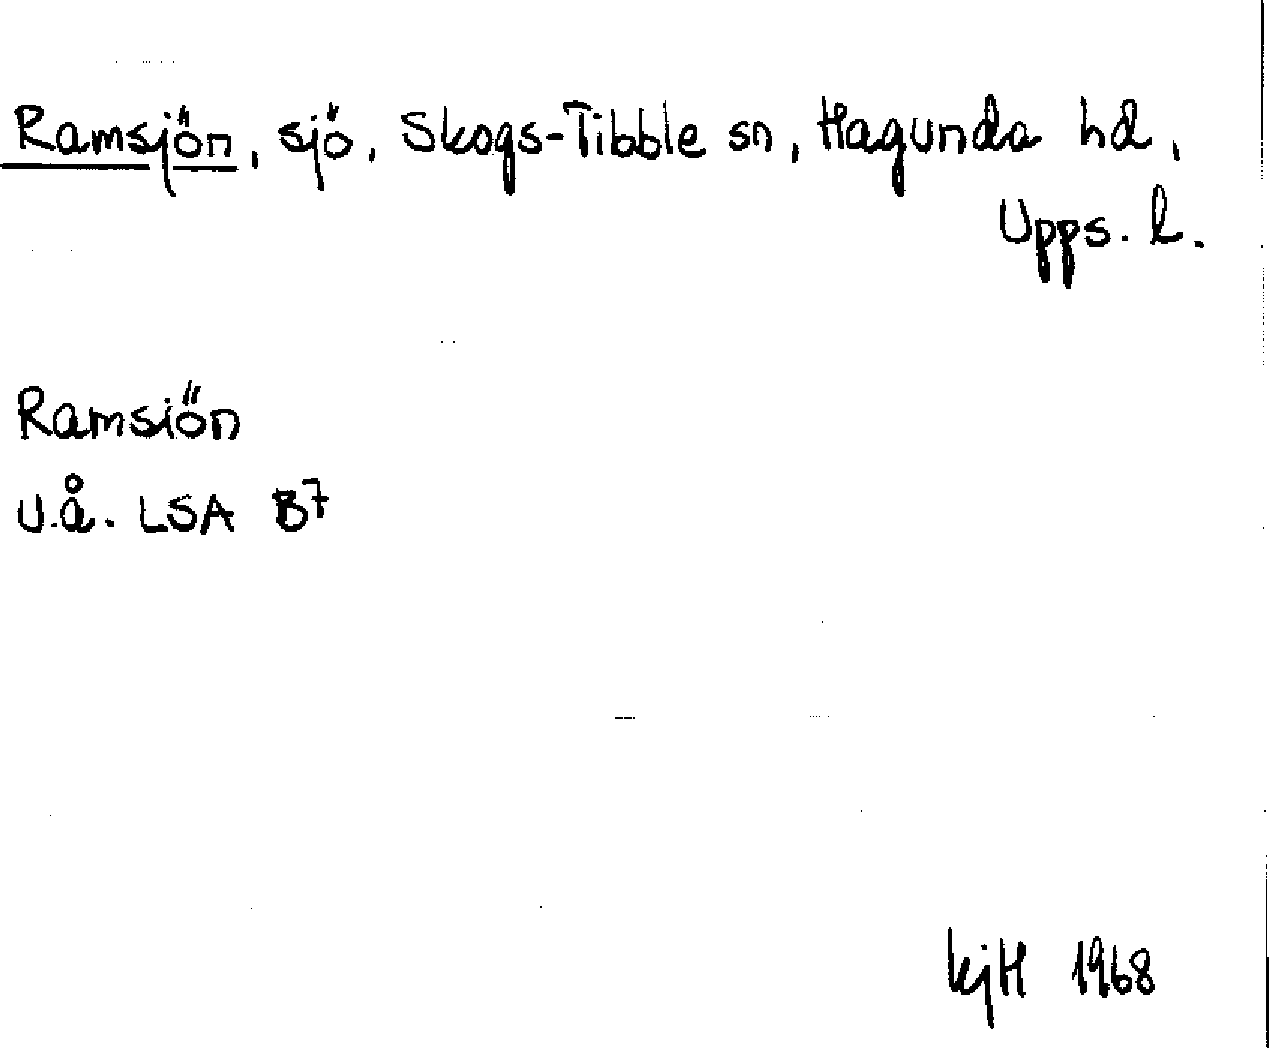 Ramsjön, sjö, Skogs-Tibble sn, Hagunda hd,
Upps. l.
Ramsiön
U.å. LSA B7
kjH 1968